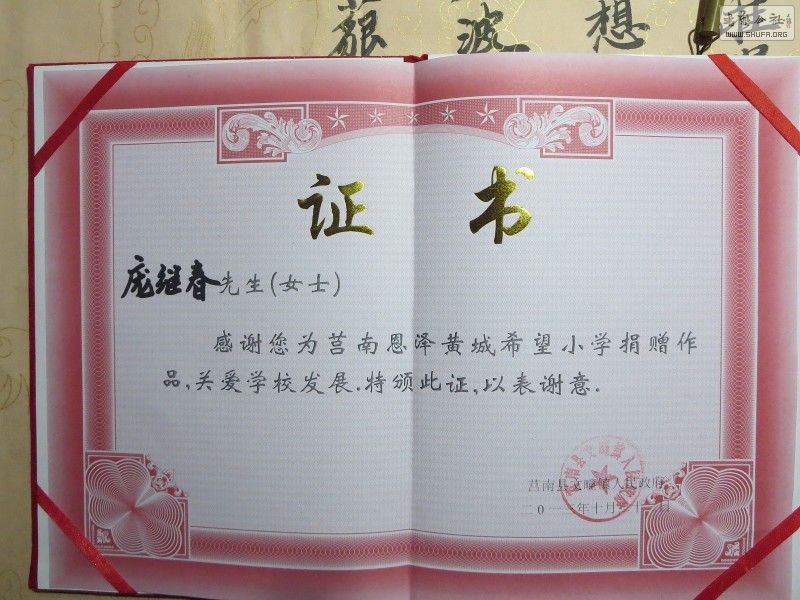 藐 波 想
书法公社
WWW.SHUFA.ORG
证书
庞继春先生(女士)
感谢您为莒南恩泽黄城希望小学捐赠作
品,关爱学校发展.特颁此证,以表谢意.
莒南县文疃镇人民政府
二〇一一年十月二十